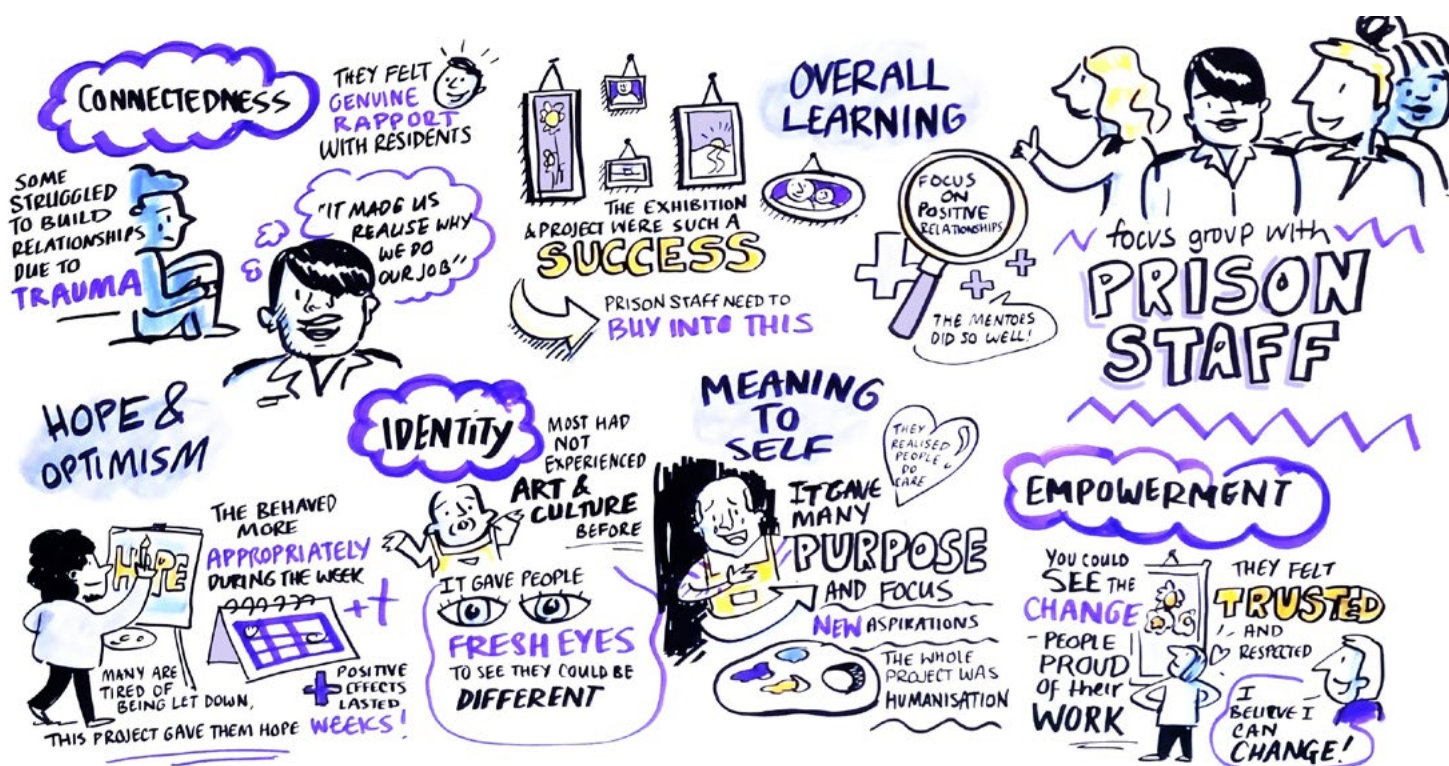 CONNECTEDNESS
THEY FELT
GENUINE
RAPPORT
WITH RESIDENTS
SOME
STRUGGLED
TO BUILD
RELATIONSHIPS
DUE TO
TRAUMA
"IT MADE US
REALISE WHY
WE DO
OUR JOB"
THE EXHIBITION
& PROJECT WERE SUCH A
SUCCESS
PRISON STAFF NEED TO
BUY INTO THIS
OVERALL
LEARNING
FOCUS
ON
POSITIVE
RELATIONSHIPS
THE MENTOES
DID SO WELL!
focus group with
PRISON
STAFF
HOPE &
OPTIMISM
HOPE
THE BEHAVED
MORE
APPROPRIATELY
DURING THE WEEK
POSITIVE
EFFECTS
LASTED
WEEKS!
MANY ARE
TIRED OF
BEING LET DOWN,
THIS PROJECT GAVE THEM HOPE
IDENTITY
MOST HAD
NOT
EXPERIENCED
ART &
CULTURE
BEFORE
IT GAVE PEOPLE
FRESH EYES
TO SEE THEY COULD BE
DIFFERENT
MEANING
TO
SELF
THEY
REALISED
PEOPLE
DO
CARE
IT GAVE
MANY
PURPOSE
AND FOCUS
NEW ASPIRATIONS
THE WHOLE
PROJECT WAS
HUMANISATION
EMPOWERMENT
YOU COULD
SEE THE
CHANGE
PEOPLE
PROUD
OF their
WORK
THEY FELT
TRUSTED
AND
RESPECTED
I
BELIEVE I
CAN
CHANGE!